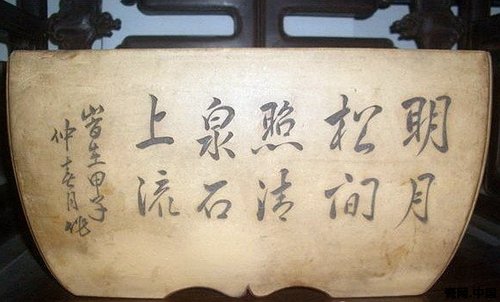 明月
松间
照清
泉石
上流
旹在甲子
仲春月作